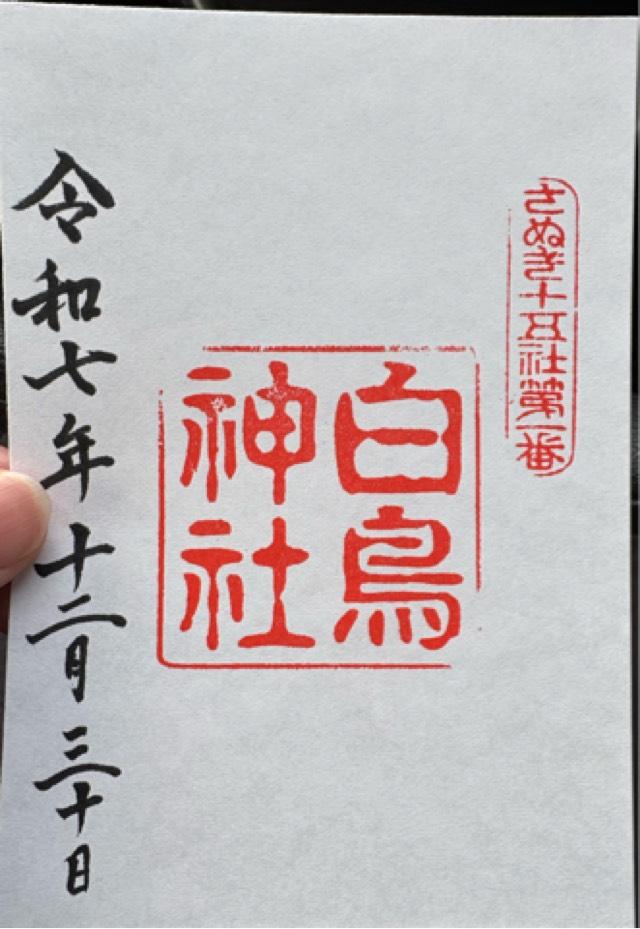 さぬき十五社第一番
白鳥
神社
令和七年十二月三十日